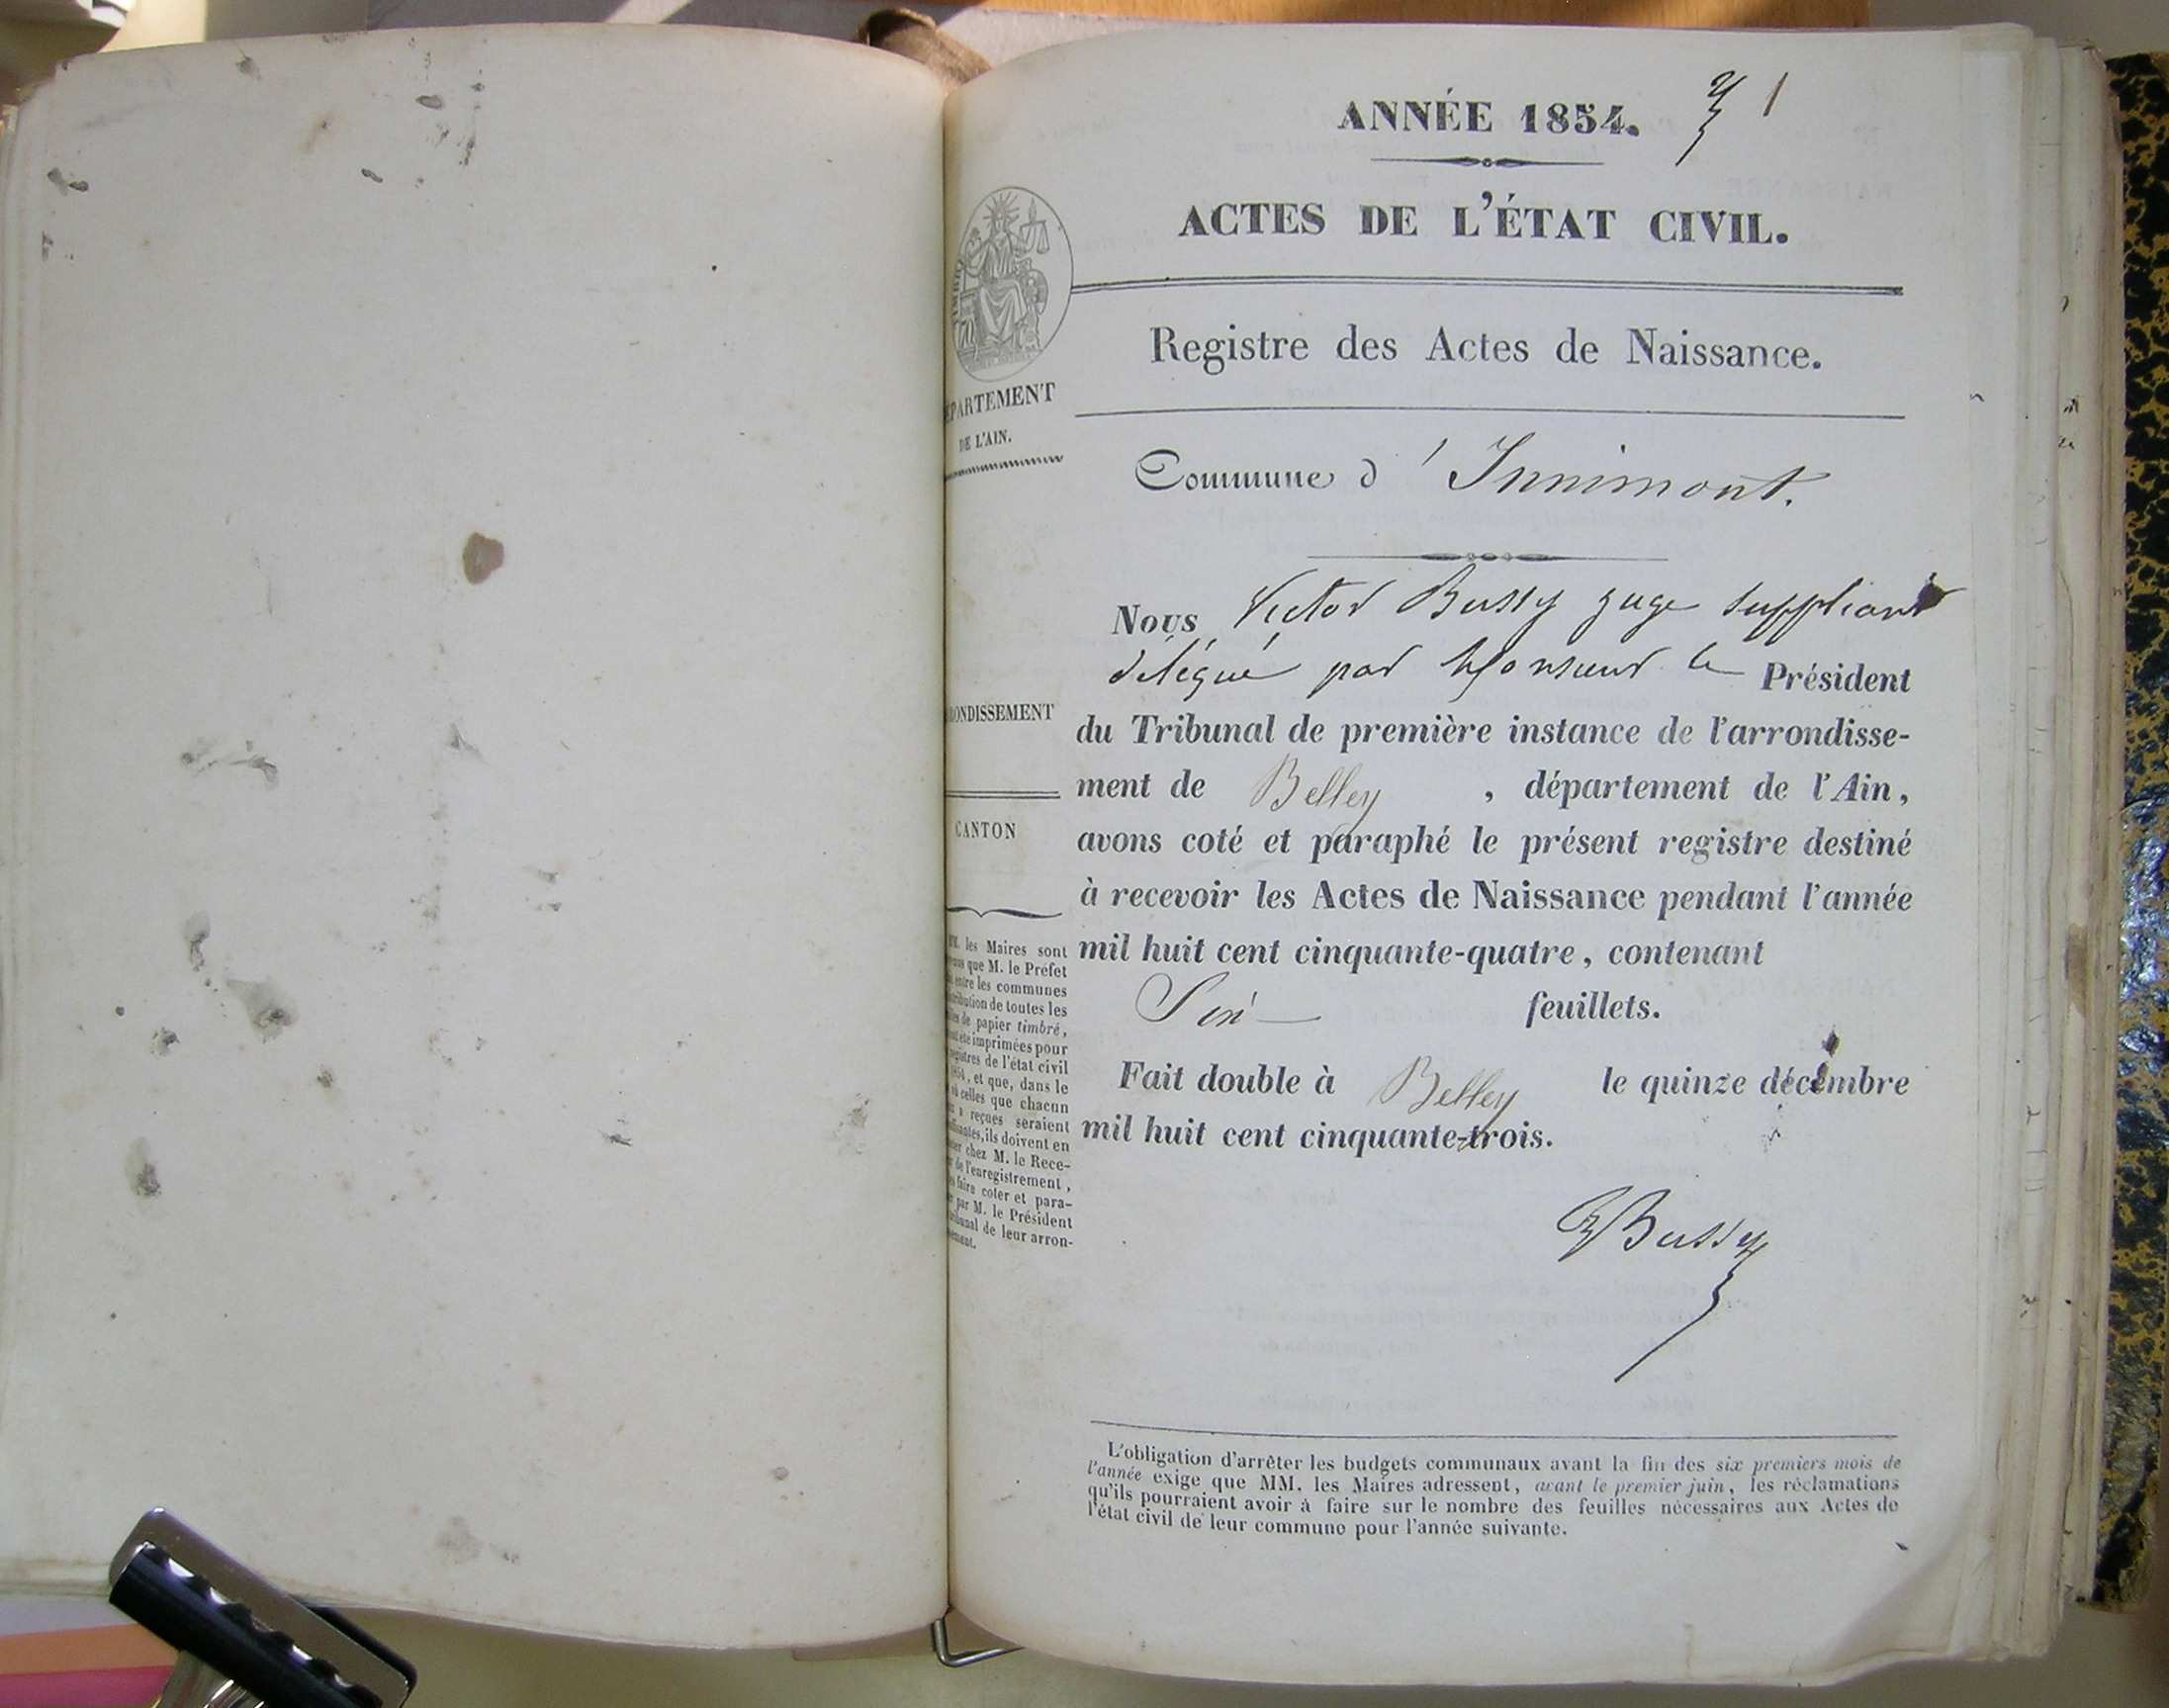 ANNÉE 1854. 1
ACTES DE L'ÉTAT CIVIL.
Registre des Actes de Naissance.
PARTEMENT
DE L'AIN.
Commune d' Innimont.
Nous Victor Bussy juge suppléant
délégué par Monsieur le Président
ONDISSEMENT
du Tribunal de première instance de l'arrondisse-
ment de Belley , département de l'Ain,
CANTON
avons coté et paraphé le présent registre destiné
à recevoir les Actes de Naissance pendant l'année
mil huit cent cinquante-quatre, contenant
feuillets.
Fait double à Belley le quinze décembre
mil huit cent cinquante-trois.
les Maires sont
que M. le Préfet
entre les communes
tribution de toutes les
de papier timbré,
été imprimées pour
gistres de l'état civil
, et que, dans le
celles que chacun
reçues seraient
santes, ils doivent en
chez M. le Rece-
de l'enregistrement,
faire coter et para-
par M. le Président
bunal de leur arron-
ement.
Bussy
L'obligation d'arrêter les budgets communaux avant la fin des six premiers mois de
l'année exige que MM. les Maires adressent, avant le premier juin, les réclamations
qu'ils pourraient avoir à faire sur le nombre des feuilles nécessaires aux Actes de
l'état civil de leur commune pour l'année suivante.